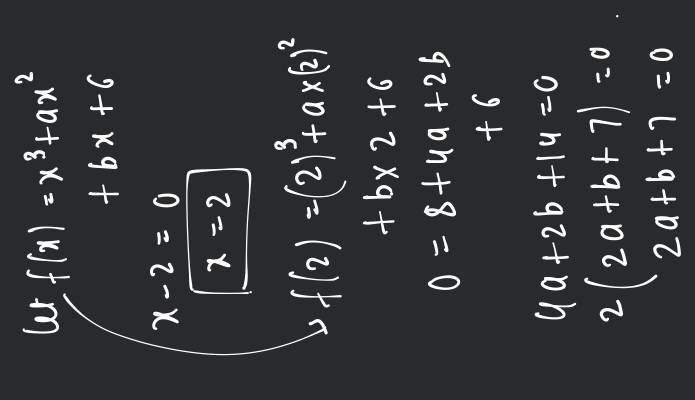 let f(x) = x³ + ax²
+ bx + 6
x - 2 = 0
x = 2
f(2) = (2)³ + a x (2)²
+ b x 2 + 6
0 = 8 + 4a + 2b
+ 6
4a + 2b + 14 = 0
2 ( 2a + b + 7 ) = 0
2a + b + 7 = 0